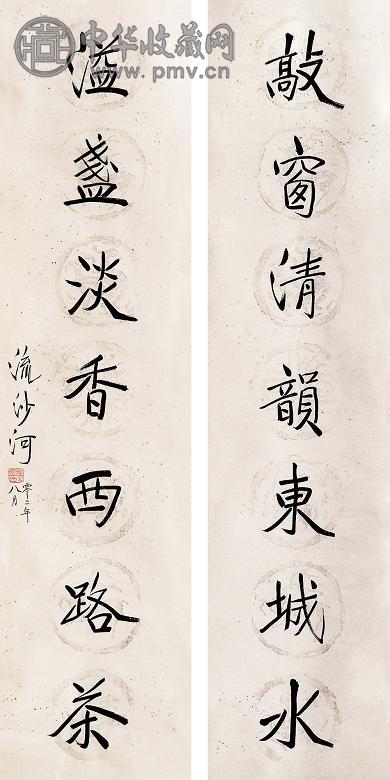 敲窗清韻東城水
溢盞淡香西路茶
流沙河
零三年
八月
中华收藏网
www.pmv.cn